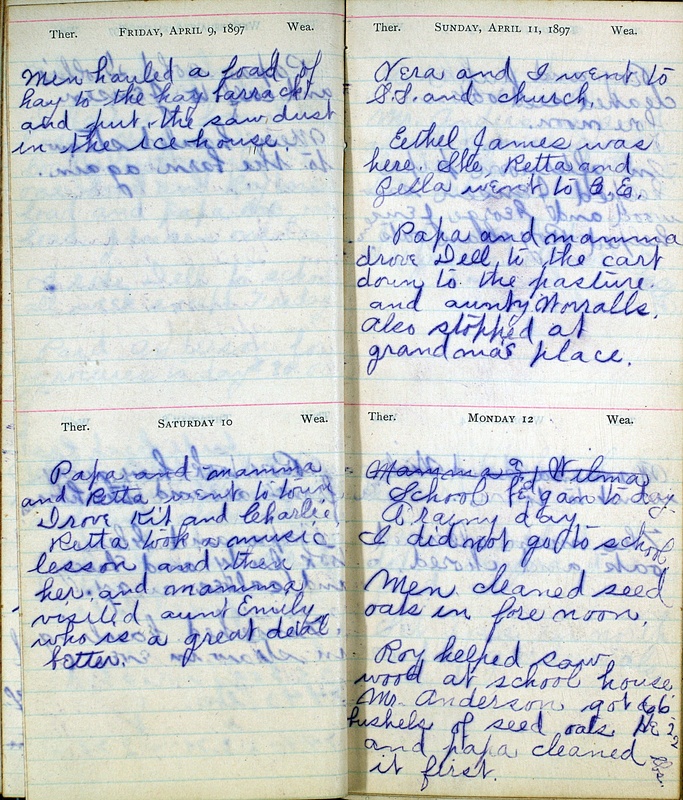 Ther. FRIDAY, APRIL 9, 1897 Wea.
Men hauled a load of
hay to the hay barrack
and put the saw dust
in the ice house.
Ther. SATURDAY 10 Wea.
Papa and mamma
and Retta went to town
Drove Kit and Charlie.
Retta took a music
lesson and then
her and mamma
visited aunt Emily
who is a great deal
better.
Ther. SUNDAY, APRIL 11, 1897 Wea.
Vera and I went to
S.S. and church.
Eethel James was
here. She Retta and
Zella went to C. E.
Papa and mamma
drove Dell to the cart
down to the pasture
and aunty Worralls.
Also stopped at
grandma's place.
Ther. MONDAY 12 Wea.
Mamma & Wilma
School began to day
A rainy day
I did not go to school
Men cleaned seed
oats in fore noon.
Roy helped saw
wood at school house
Mr. Anderson got 66
bushels of seed oats He 22
and papa cleaned
it first.